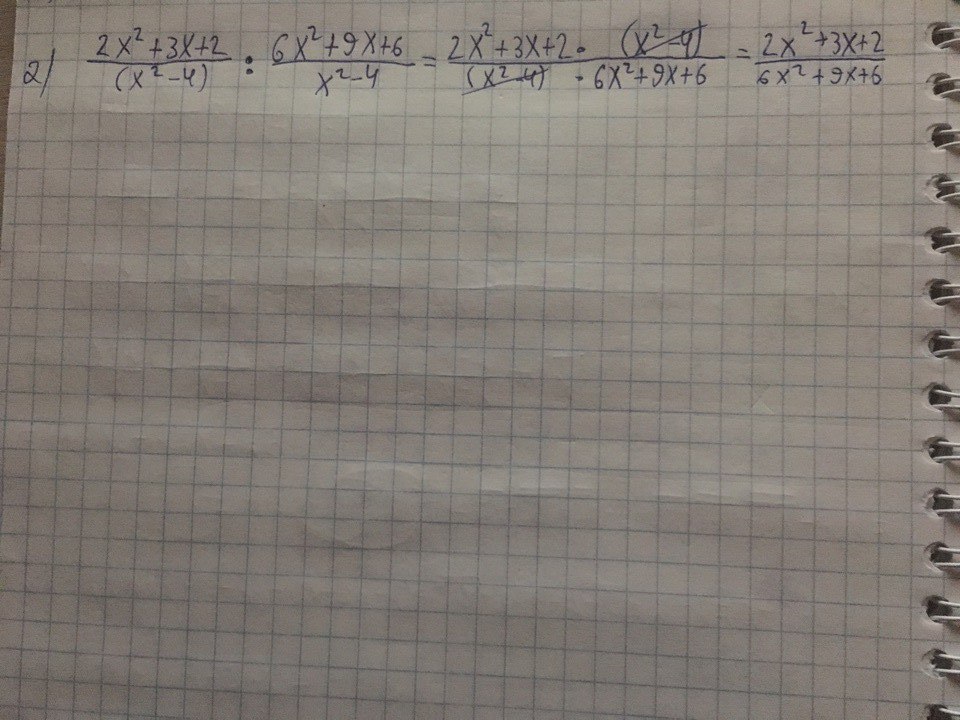 2) (2x²+3x+2)/((x²-4)) : (6x²+9x+6)/(x²-4) = (2x²+3x+2 · (x²-4))/((x²-4) · 6x²+9x+6) = (2x²+3x+2)/(6x²+9x+6)